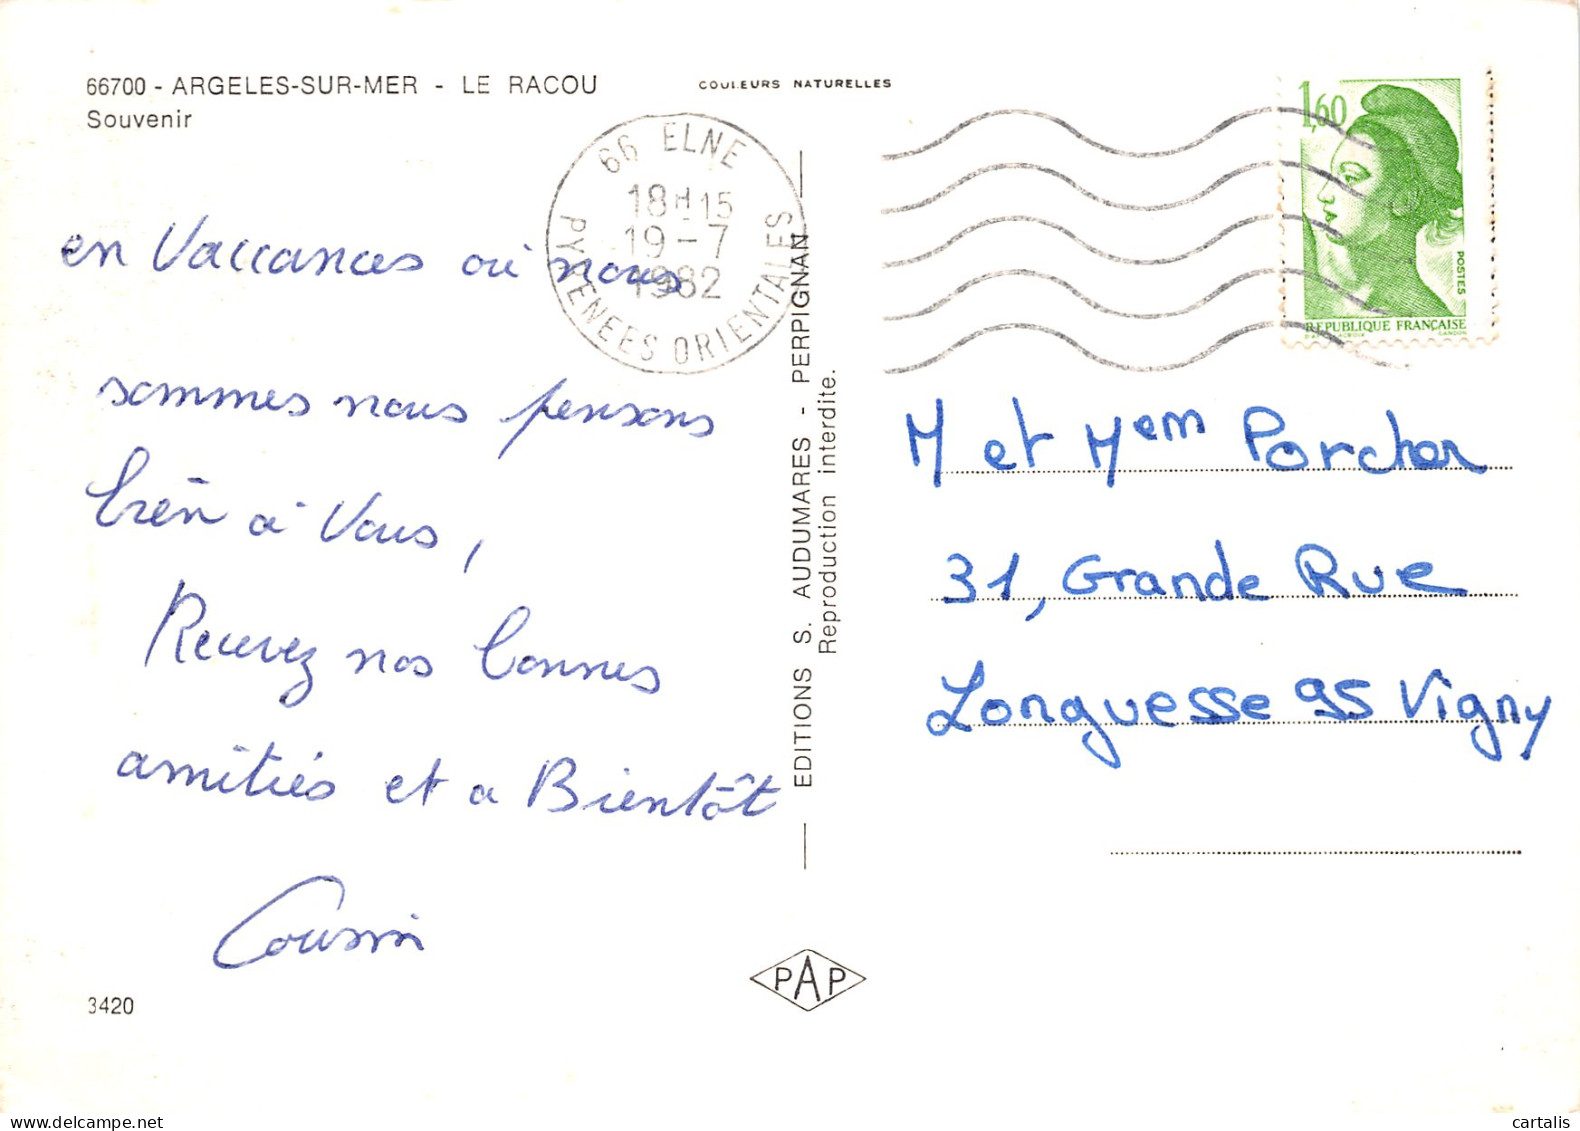 66700 - ARGELES-SUR-MER - LE RACOU
Souvenir
COULEURS NATURELLES
66 ELNE
18H15
19-7
1982
PYRENEES ORIENTALES
1,60
POSTES
REPUBLIQUE FRANÇAISE
en Vaccances où nous
sommes nous pensons
bien à Vous,
Recevez nos bonnes
amitiés et a Bientôt
Cousin
3420
EDITIONS S. AUDUMARES - PERPIGNAN
Reproduction interdite.
PAP
M et Mem Porcher
31, Grande Rue
Longuesse 95 Vigny
cartalis